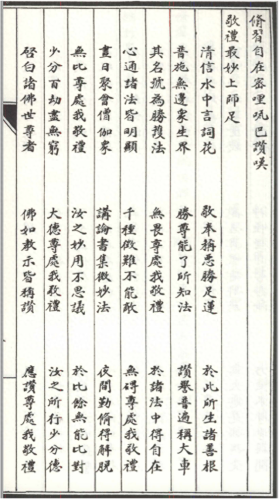 脩習自在密哩咓巴讚嘆
敬禮最妙上師足
清信水中言詞花 敬奉稱悉勝足蓮 於此所生諸善根
普施無邊衆生界 勝尊能了所知法 讚譽普遍稱大車
其名號為勝護法 無畏尊處我敬禮 於諸法中得自在
心通諸法皆明顯 千種徵難不能敵 無碍尊處我敬禮
晝日聚會僧伽衆 講論書集微妙法 夜間勤脩得解脫
無比尊處我敬禮 汝之妙用不思議 於比餘無能比對
少分百劫盡無窮 大德尊處我敬禮 汝之所行少分德
啓白諸佛世尊者 佛如教示皆稱讚 應讚尊處我敬禮